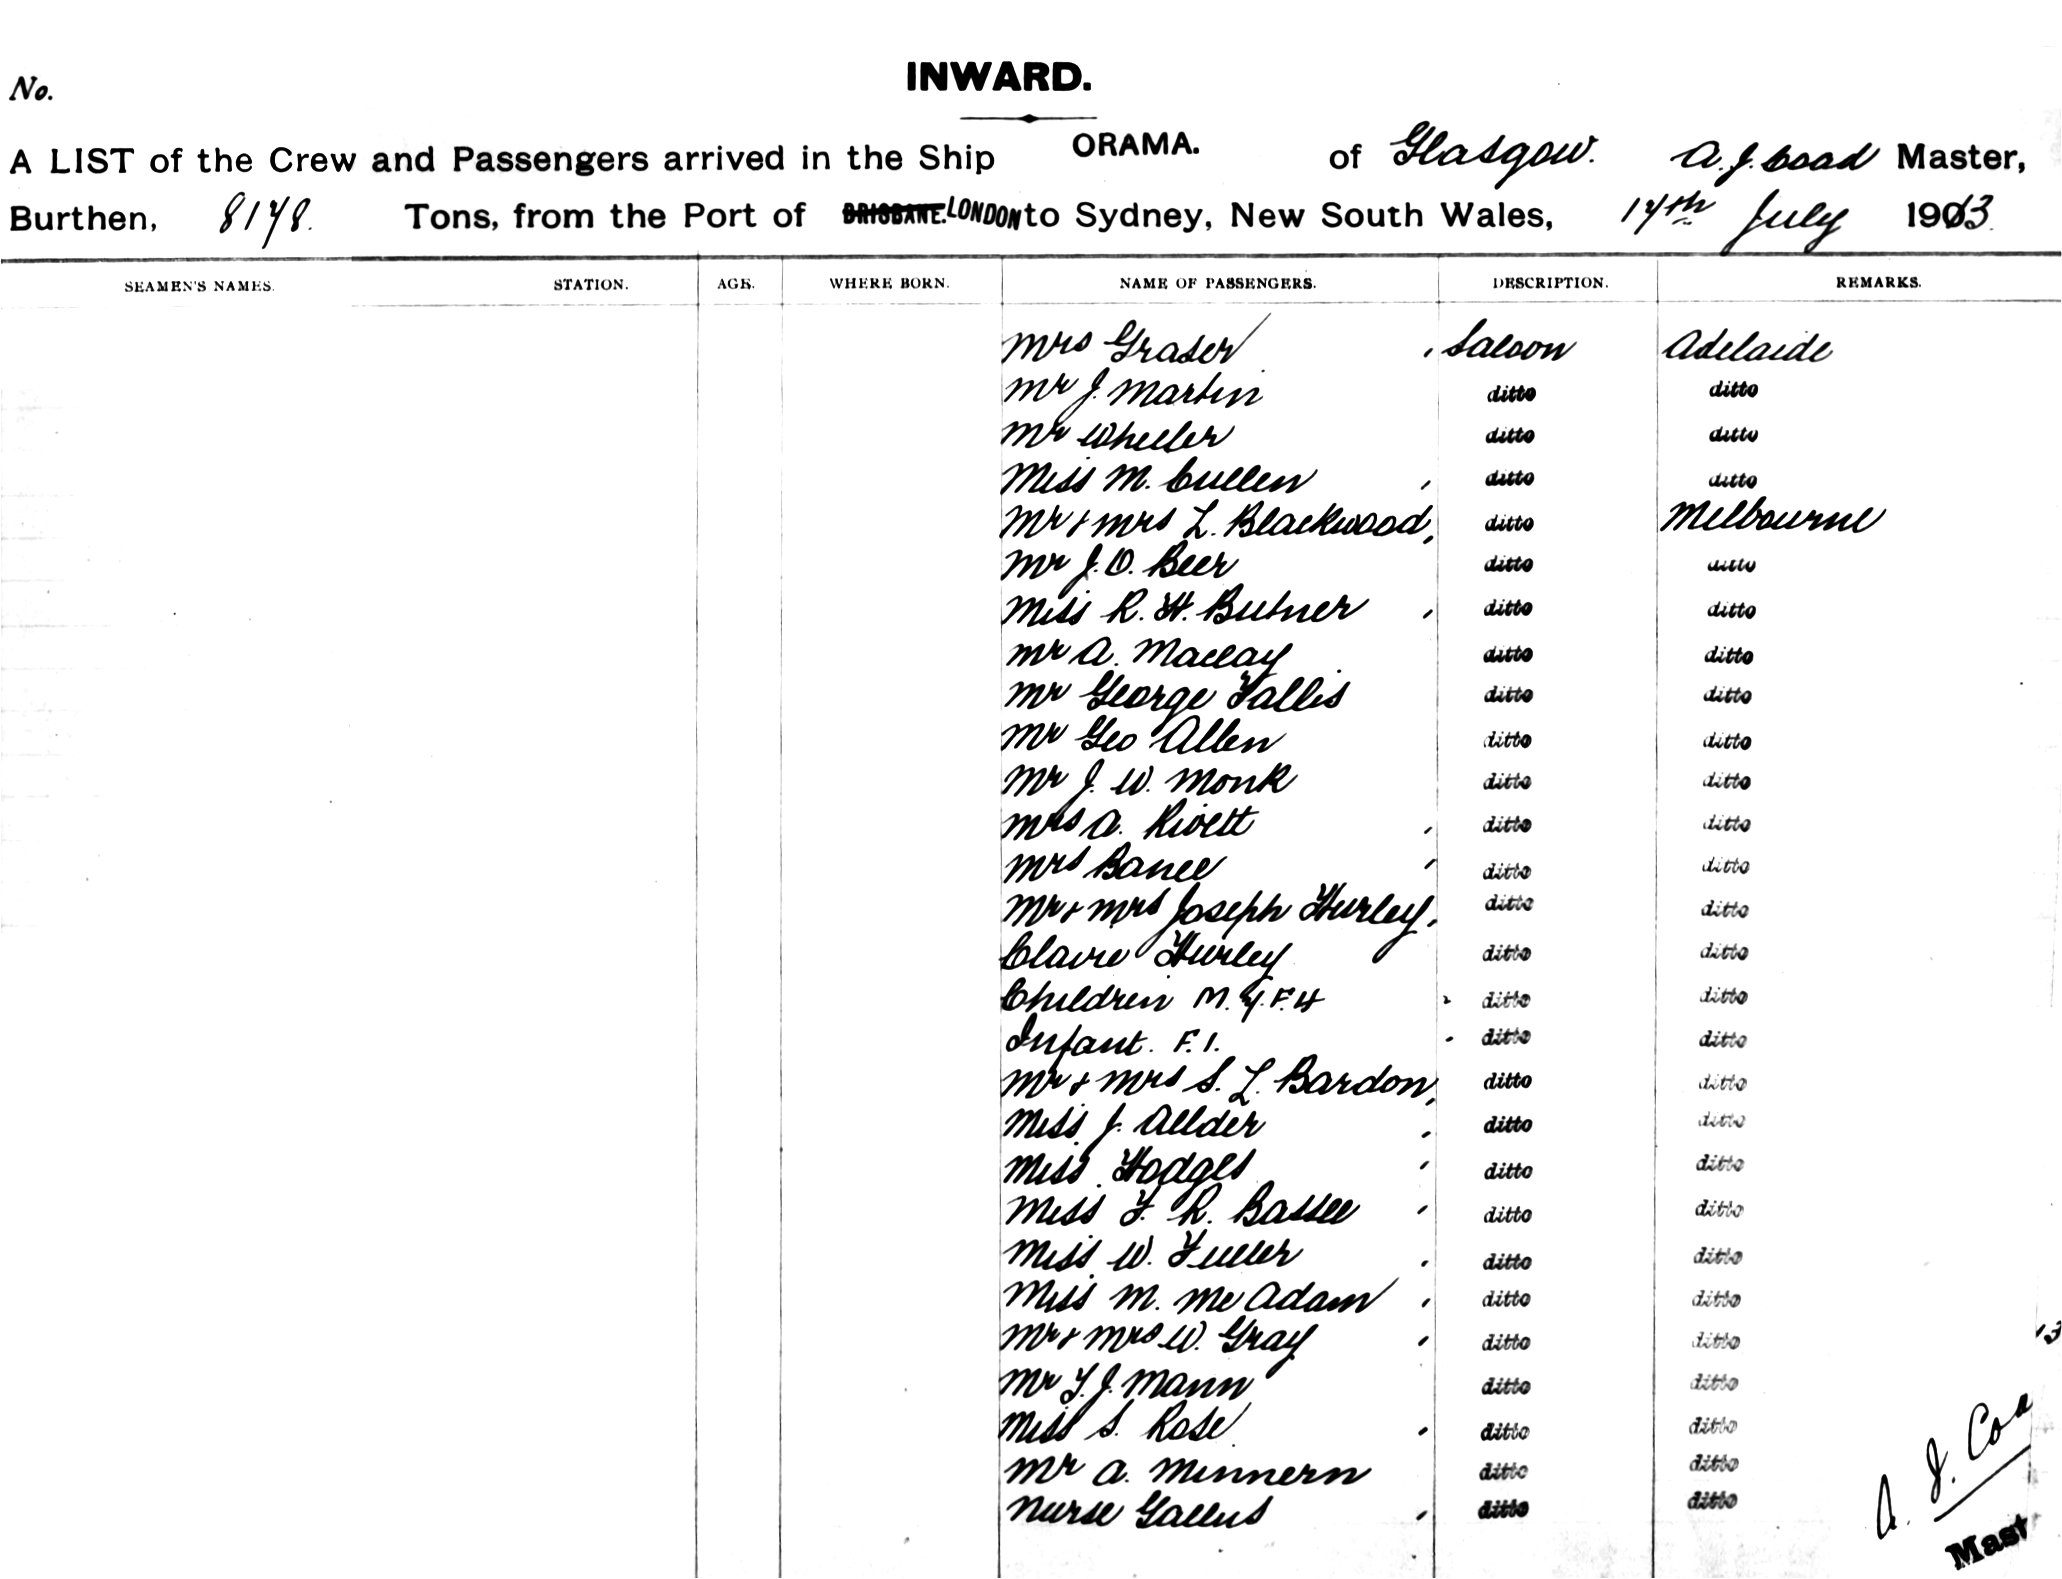 No.
INWARD.
A LIST of the Crew and Passengers arrived in the Ship ORAMA. of Glasgow. A. J. Coad Master,
Burthen, 8178. Tons, from the Port of BRISBANE. LONDON to Sydney, New South Wales, 17th July 1913.
SEAMEN'S NAMES. STATION. AGE. WHERE BORN. NAME OF PASSENGERS. DESCRIPTION. REMARKS.
Mrs Graser Saloon Adelaide
Mr J. Martin ditto ditto
Mr Wheeler ditto ditto
Miss M. Cullen ditto ditto
Mr & Mrs L. Blackwood ditto Melbourne
Mr J. O. Beer ditto ditto
Miss R. H. Butner ditto ditto
Mr A. Maclay ditto ditto
Mr George Fallis ditto ditto
Mr Geo Allen ditto ditto
Mr J. W. Monk ditto ditto
Mrs A. Rivett ditto ditto
Mrs Bance ditto ditto
Mr & Mrs Joseph Hurley ditto ditto
Claire Hurley ditto ditto
Children M. F. 4 ditto ditto
Infant. F. 1. ditto ditto
Mr & Mrs S. L. Bardon ditto ditto
Miss J. Allder ditto ditto
Miss Hodges ditto ditto
Miss F. R. ditto ditto
Miss W. Fuller ditto ditto
Miss M. Mc Adam ditto ditto
Mr & Mrs W. Gray ditto ditto
Mr J. Mann ditto ditto
Miss S. Rose ditto ditto
Mr A. Minnern ditto ditto
Nurse Gallus ditto ditto
13
A. J. Coa
Mast